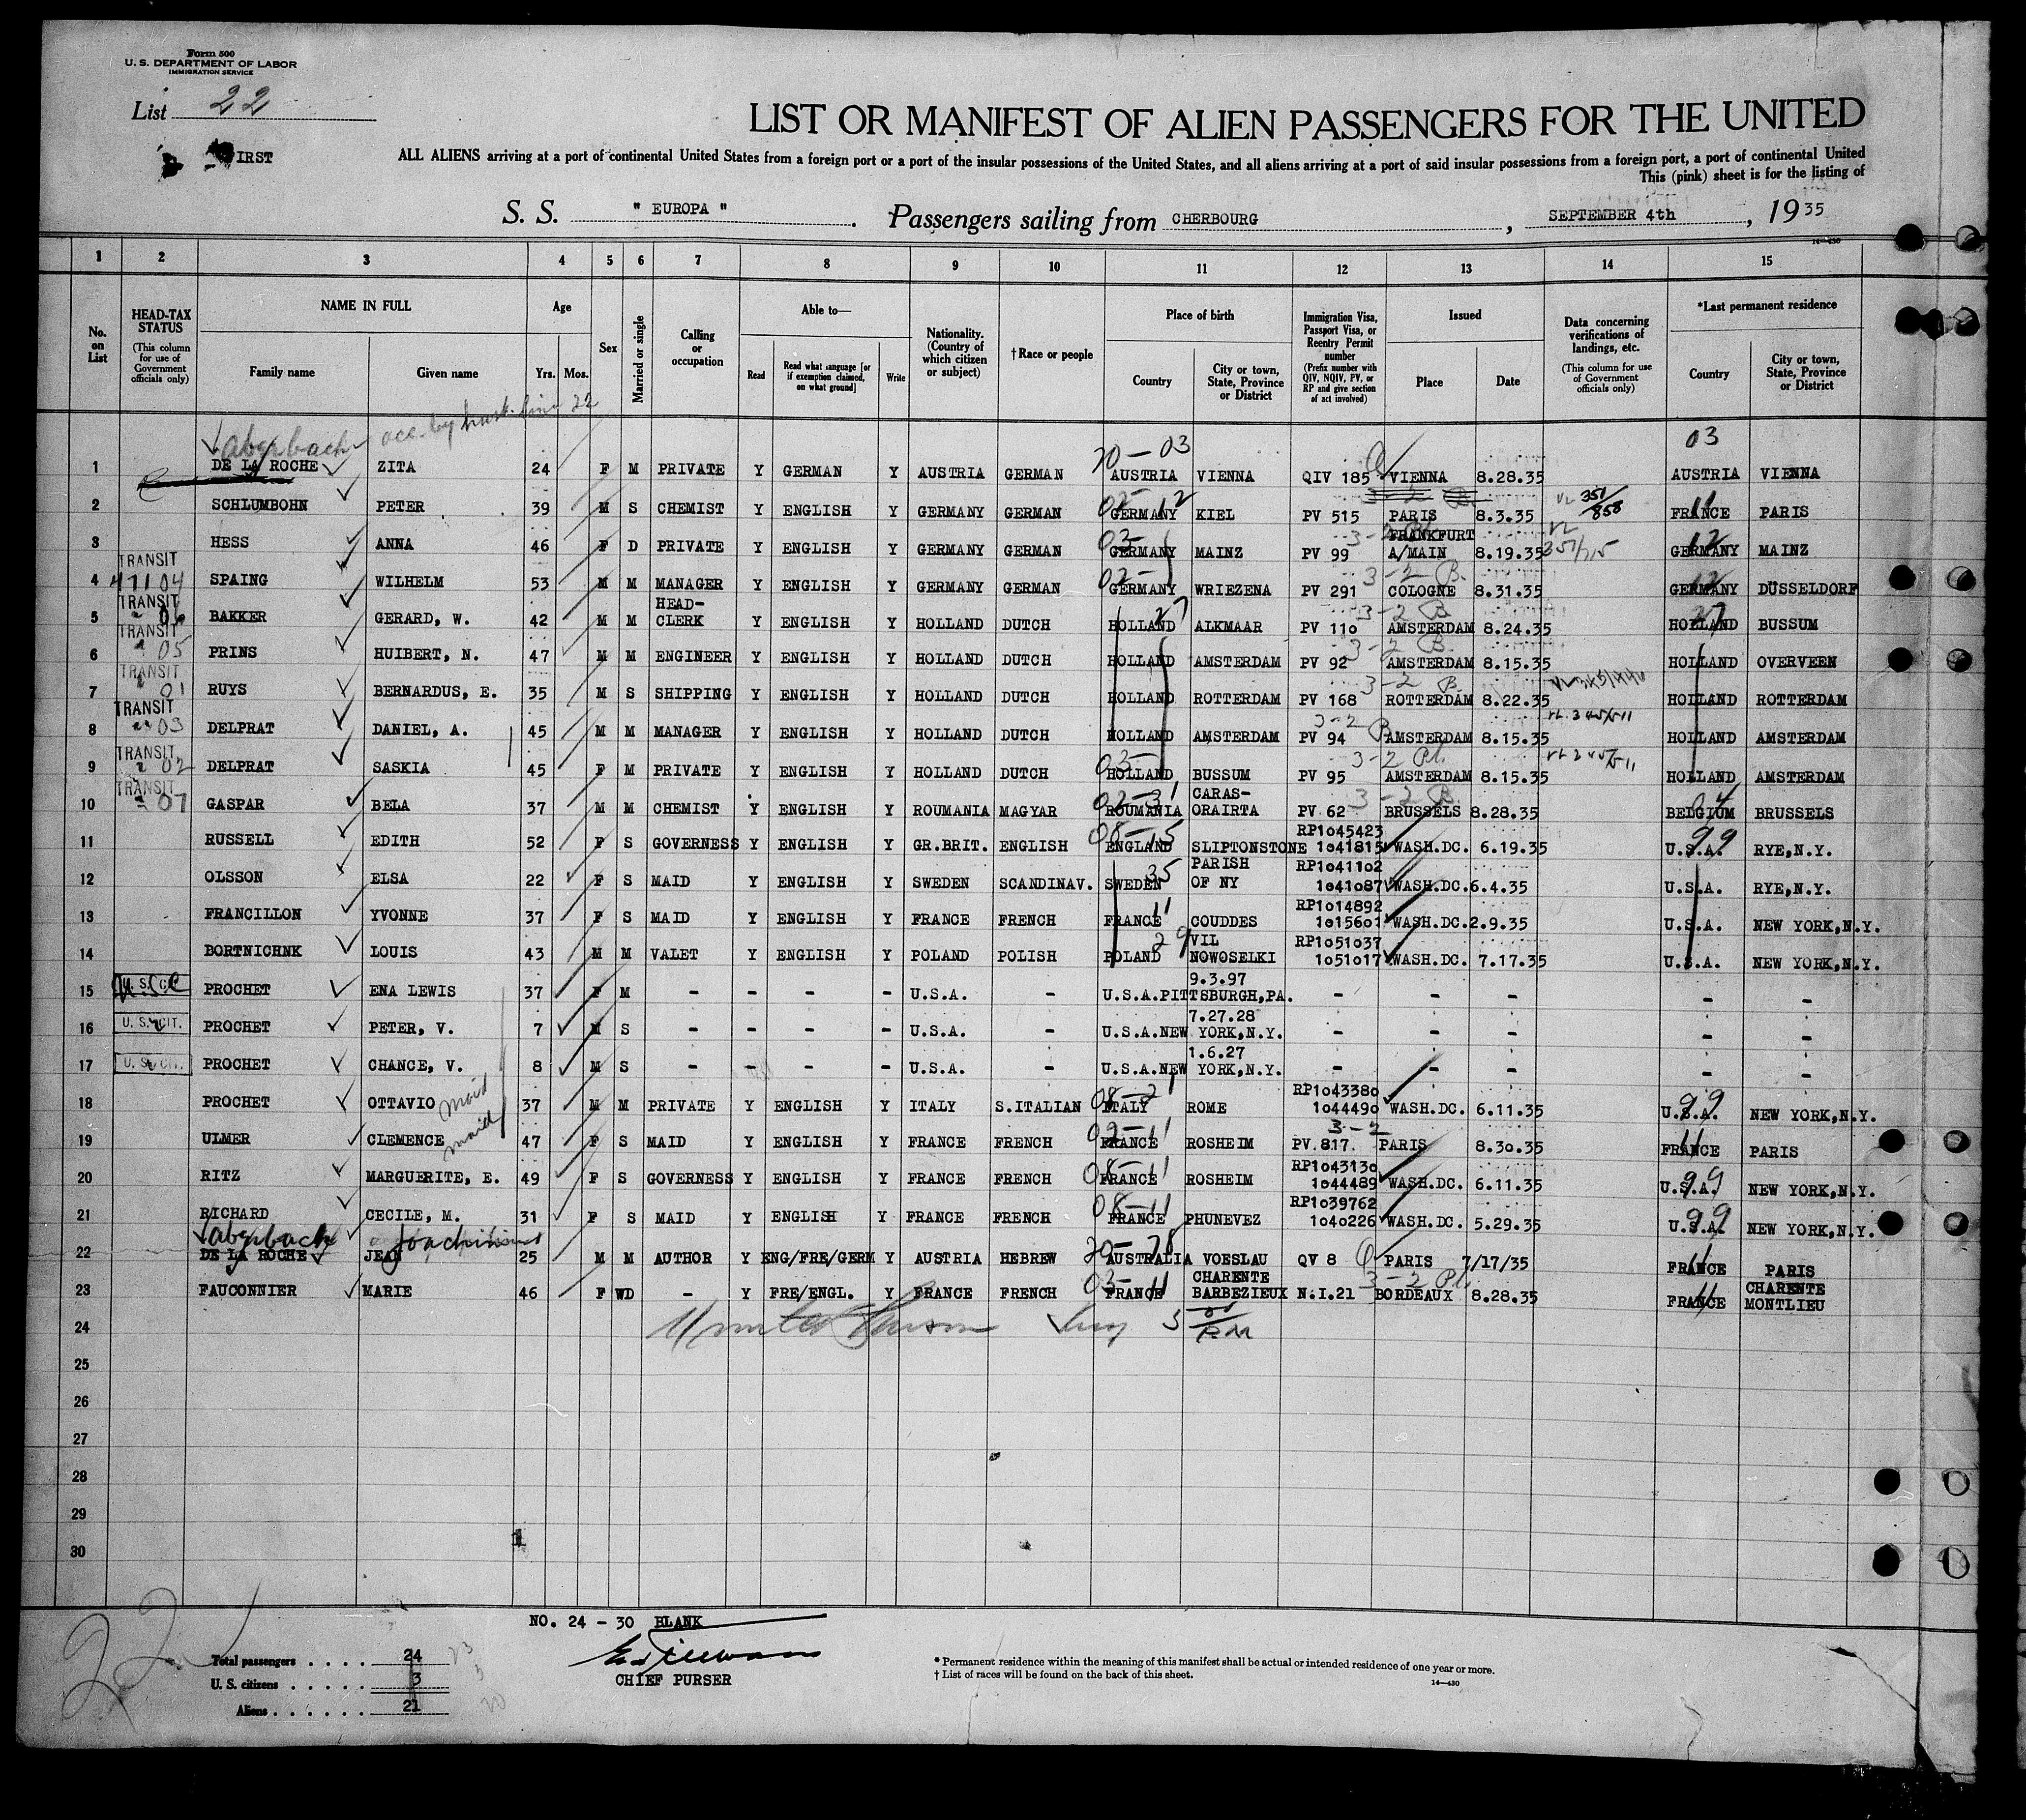 Form 500
U. S. DEPARTMENT OF LABOR
IMMIGRATION SERVICE
List 22
IRST
LIST OR MANIFEST OF ALIEN PASSENGERS FOR THE UNITED
ALL ALIENS arriving at a port of continental United States from a foreign port or a port of the insular possessions of the United States, and all aliens arriving at a port of said insular possessions from a foreign port, a port of continental United
This (pink) sheet is for the listing of
S. S. " EUROPA " . Passengers sailing from CHERBOURG , SEPTEMBER 4th , 19 35
14—430
1 2 3 4 5 6 7 8 9 10 11 12 13 14 15
No. on List
HEAD-TAX STATUS (This column for use of Government officials only)
NAME IN FULL Family name Given name
Age Yrs. Mos.
Sex
Married or single
Calling or occupation
Able to— Read Read what language [or if exemption claimed, on what ground] Write
Nationality. (Country of which citizen or subject)
† Race or people
Place of birth Country City or town, State, Province or District
Immigration Visa, Passport Visa, or Reentry Permit number (Prefix number with QIV, NQIV, PV, or RP and give section of act involved)
Issued Place Date
Data concerning verifications of landings, etc. (This column for use of Government officials only)
*Last permanent residence Country City or town, State, Province or District
aberbach acc. by husb. line 22 20-03 03
1 DE LA ROCHE ZITA 24 F M PRIVATE Y GERMAN Y AUSTRIA GERMAN AUSTRIA VIENNA QIV 185 VIENNA 8.28.35 AUSTRIA VIENNA
2 SCHLUMBOHN PETER 39 M S CHEMIST Y ENGLISH Y GERMANY GERMAN GERMANY KIEL PV 515 PARIS 8.3.35 351/858 FRANCE PARIS
3 HESS ANNA 46 F D PRIVATE Y ENGLISH Y GERMANY GERMAN GERMANY MAINZ PV 99 FRANKFURT A/MAIN 8.19.35 GERMANY MAINZ
TRANSIT
4 47104 SPAING WILHELM 53 M M MANAGER Y ENGLISH Y GERMANY GERMAN GERMANY WRIEZENA PV 291 3-2 B. COLOGNE 8.31.35 GERMANY DÜSSELDORF
TRANSIT
5 " 06 BAKKER GERARD, W. 42 M M HEAD-CLERK Y ENGLISH Y HOLLAND DUTCH HOLLAND ALKMAAR PV 110 3-2 B AMSTERDAM 8.24.35 HOLLAND BUSSUM
TRANSIT
6 " 05 PRINS HUIBERT, N. 47 M M ENGINEER Y ENGLISH Y HOLLAND DUTCH HOLLAND AMSTERDAM PV 92 3-2 B. AMSTERDAM 8.15.35 HOLLAND OVERVEEN
TRANSIT
7 " 01 RUYS BERNARDUS, E. 35 M S SHIPPING Y ENGLISH Y HOLLAND DUTCH HOLLAND ROTTERDAM PV 168 3-2 B. ROTTERDAM 8.22.35 HOLLAND ROTTERDAM
TRANSIT
8 " 03 DELPRAT DANIEL, A. 45 M M MANAGER Y ENGLISH Y HOLLAND DUTCH HOLLAND AMSTERDAM PV 94 3-2 B AMSTERDAM 8.15.35 HOLLAND AMSTERDAM
TRANSIT
9 " 02 DELPRAT SASKIA 45 F M PRIVATE Y ENGLISH Y HOLLAND DUTCH HOLLAND BUSSUM PV 95 3-2 Pl. AMSTERDAM 8.15.35 HOLLAND AMSTERDAM
TRANSIT
10 " 07 GASPAR BELA 37 M M CHEMIST Y ENGLISH Y ROUMANIA MAGYAR ROUMANIA CARAS-ORAIRTA PV 62 3-2 B. BRUSSELS 8.28.35 BELGIUM BRUSSELS
11 RUSSELL EDITH 52 F S GOVERNESS Y ENGLISH Y GR.BRIT. ENGLISH ENGLAND SLIPTONSTONE RP1045423 1041815 WASH.DC. 6.19.35 U.S.A. 99 RYE,N.Y.
12 OLSSON ELSA 22 F S MAID Y ENGLISH Y SWEDEN SCANDINAV. SWEDEN 35 PARISH OF NY RP1041102 1041087 WASH.DC. 6.4.35 U.S.A. RYE,N.Y.
13 FRANCILLON YVONNE 37 F S MAID Y ENGLISH Y FRANCE FRENCH FRANCE 11 COUDDES RP1014892 1015601 WASH.DC. 2.9.35 U.S.A. NEW YORK,N.Y.
14 BORTNICHNK LOUIS 43 M M VALET Y ENGLISH Y POLAND POLISH POLAND 29 VIL NOWOSELKI RP1051037 1051017 WASH.DC. 7.17.35 U.S.A. NEW YORK,N.Y.
15 U.S. CIT. PROCHET ENA LEWIS 37 F M - - - - U.S.A. - 9.3.97 U.S.A. PITTSBURGH,PA. - - - - -
16 U.S. CIT. PROCHET PETER, V. 7 M S - - - - U.S.A. - 7.27.28 U.S.A. NEW YORK,N.Y. - - - - -
17 U.S. CIT. PROCHET CHANCE, V. 8 M S - - - - U.S.A. - 1.6.27 U.S.A. NEW YORK,N.Y. - - - - -
18 PROCHET OTTAVIO maid 37 M M PRIVATE Y ENGLISH Y ITALY S.ITALIAN 08-21 ITALY ROME RP1043380 1044490 WASH.DC. 6.11.35 U.S.A. 99 NEW YORK,N.Y.
19 ULMER CLEMENCE maid 47 F S MAID Y ENGLISH Y FRANCE FRENCH FRANCE ROSHEIM 3-2 PV.817. PARIS 8.30.35 FRANCE 11 PARIS
20 RITZ MARGUERITE, E. 49 F S GOVERNESS Y ENGLISH Y FRANCE FRENCH 08-11 FRANCE ROSHEIM RP1043130 1044489 WASH.DC. 6.11.35 U.S.A. 99 NEW YORK,N.Y.
21 RICHARD CECILE, M. 31 F S MAID Y ENGLISH Y FRANCE FRENCH 08-11 FRANCE PHUNEVEZ RP1039762 1040226 WASH.DC. 5.29.35 U.S.A. 99 NEW YORK,N.Y.
aberbach
22 DE LA ROCHE JEAN 25 M M AUTHOR Y ENG/FRE/GERM Y AUSTRIA HEBREW AUSTRALIA VOESLAU QV 8 PARIS 7/17/35 FRANCE 11 PARIS
23 FAUCONNIER MARIE 46 F WD - Y FRE/ENGL. Y FRANCE FRENCH FRANCE 11 CHARENTE BARBEZIEUX N.I.21 3-2 Pl. BORDEAUX 8.28.35 FRANCE 11 CHARENTE MONTLIEU
24
25
26
27
28
29
30
NO. 24 - 30 BLANK
22
Total passengers . . . . 24 23
U. S. citizens . . . . . 3 3
Aliens . . . . . . 21 20
CHIEF PURSER
* Permanent residence within the meaning of this manifest shall be actual or intended residence of one year or more.
† List of races will be found on the back of this sheet.
14—430